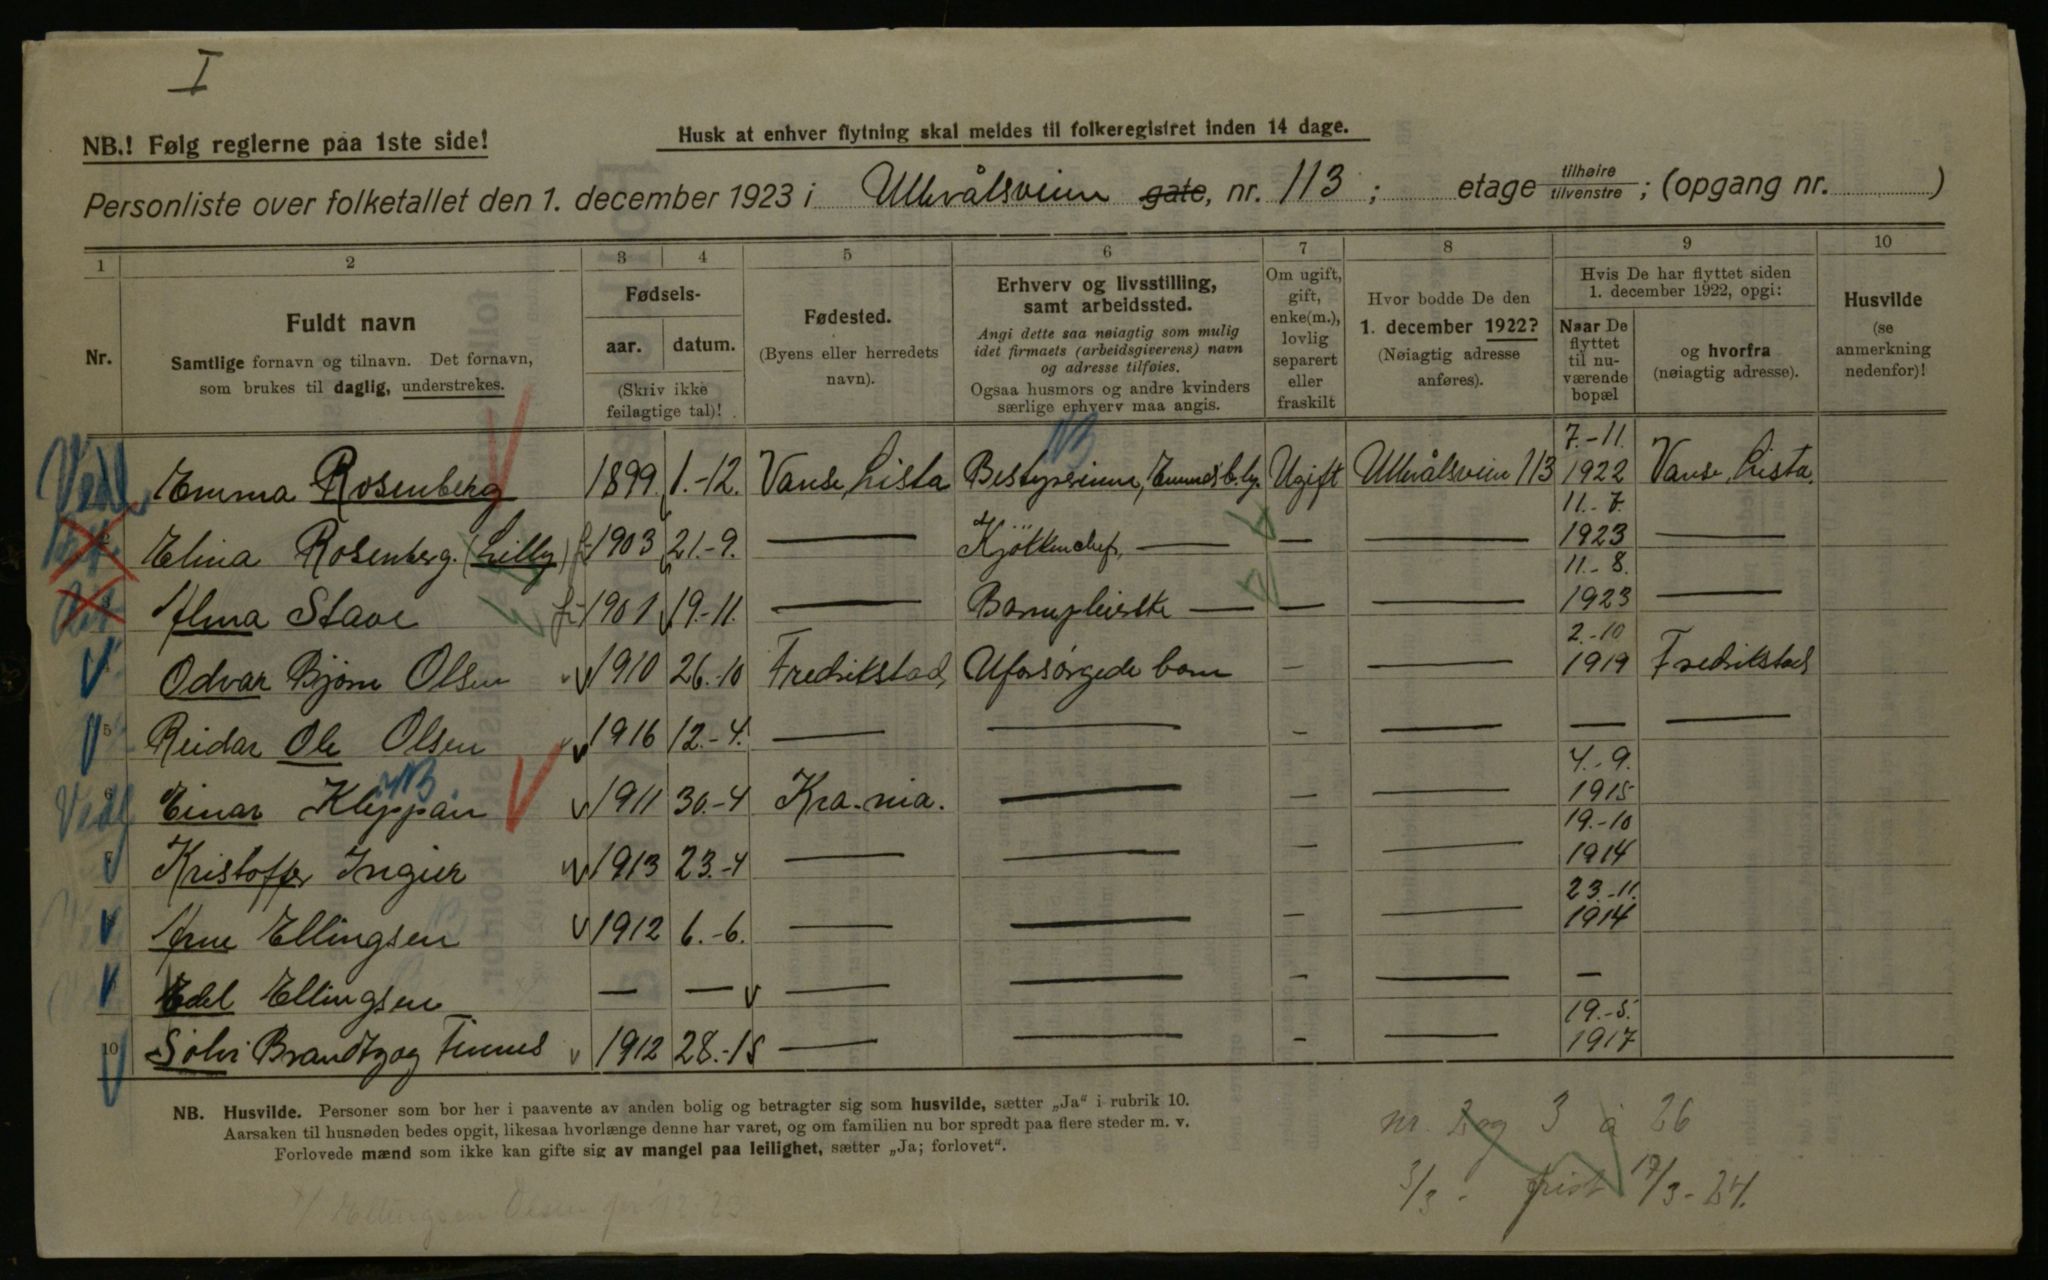 I
NB.! Følg reglerne paa 1ste side!
Husk at enhver flytning skal meldes til folkeregistret inden 14 dage.
Personliste over folketallet den 1. december 1923 i Ullevålsveien gate, nr. 113 ; etage tilhøire tilvenstre ; (opgang nr. )
1 2 3 4 5 6 7 8 9 10
Nr.
Fuldt navn
Samtlige fornavn og tilnavn. Det fornavn,
som brukes til daglig, understrekes.
Fødsels-
aar. datum.
(Skriv ikke
feilagtige tal)!
Fødested.
(Byens eller herredets
navn).
Erhverv og livsstilling,
samt arbeidssted.
Angi dette saa nøiagtig som mulig
idet firmaets (arbeidsgiverens) navn
og adresse tilføies.
Ogsaa husmors og andre kvinders
særlige erhverv maa angis.
Om ugift,
gift,
enke(m.),
lovlig
separert
eller
fraskilt
Hvor bodde De den
1. december 1922?
(Nøiagtig adresse
anføres).
Hvis De har flyttet siden
1. december 1922, opgi:
Naar De
flyttet
til nu-
værende
bopæl
og hvorfra
(nøiagtig adresse).
Husvilde
(se
anmerkning
nedenfor)!
Vedl. Emma Rosenberg 1899 1.-12. Vanse, Lista Bestyrerinne, NB Ugift Ullevålsveien 113 7.-11. 1922 Vanse, Lista.
Elina Rosenberg. (Lilly) 1903 21.-9. — Kjökkenchef, — — — 11.-7. 1923 —
Alma Stave 1901 19.-11. — Barnepleierske — — — 11.-8. 1923 —
Odvar Bjørn Olsen 1910 26.-10 Fredrikstad, Uforsörgede barn — — 2.-10 1919 Fredrikstad
5 Reidar Ole Olsen 1916 12.-4. — — — — — —
Vedl Einar Kleppan NB 1911 30.-4 Kra.nia. — — — 4.-9. 1915
Kristoffer Ingier 1913 23.-4 — — — — 19.-10 1914
Arne Ellingsen 1912 6.-6. — — — — 23.-11. 1914
Edel Ellingsen — — — — — — —
10 Solvi Brandtzæg Finnes 1912 28.-15 — — — — 19.-5. 1917
NB. Husvilde. Personer som bor her i paavente av anden bolig og betragter sig som husvilde, sætter „Ja“ i rubrik 10.
Aarsaken til husnøden bedes opgit, likesaa hvorlænge denne har varet, og om familien nu bor spredt paa flere steder m. v.
Forlovede mænd som ikke kan gifte sig av mangel paa leilighet, sætter „Ja; forlovet“.
nr. 2 og 3 à 26
3/3 - frist 17/3-24.